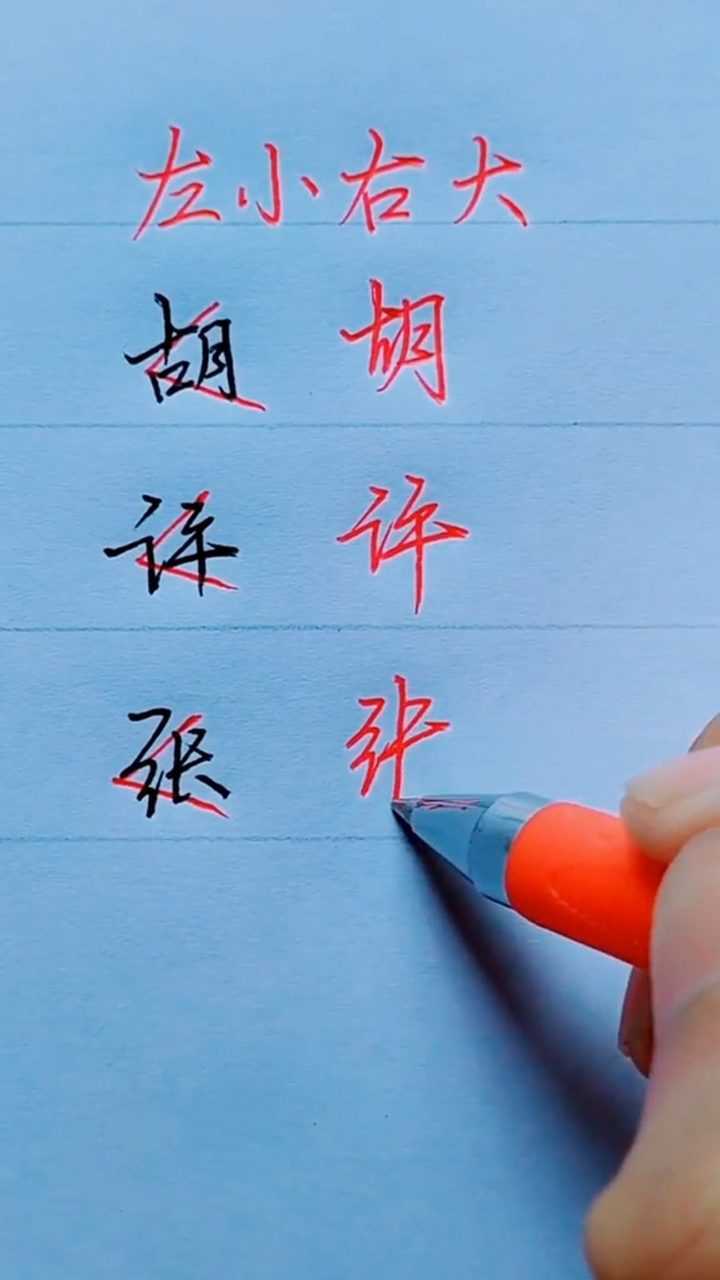 左小右大
胡 胡
许 许
张 张